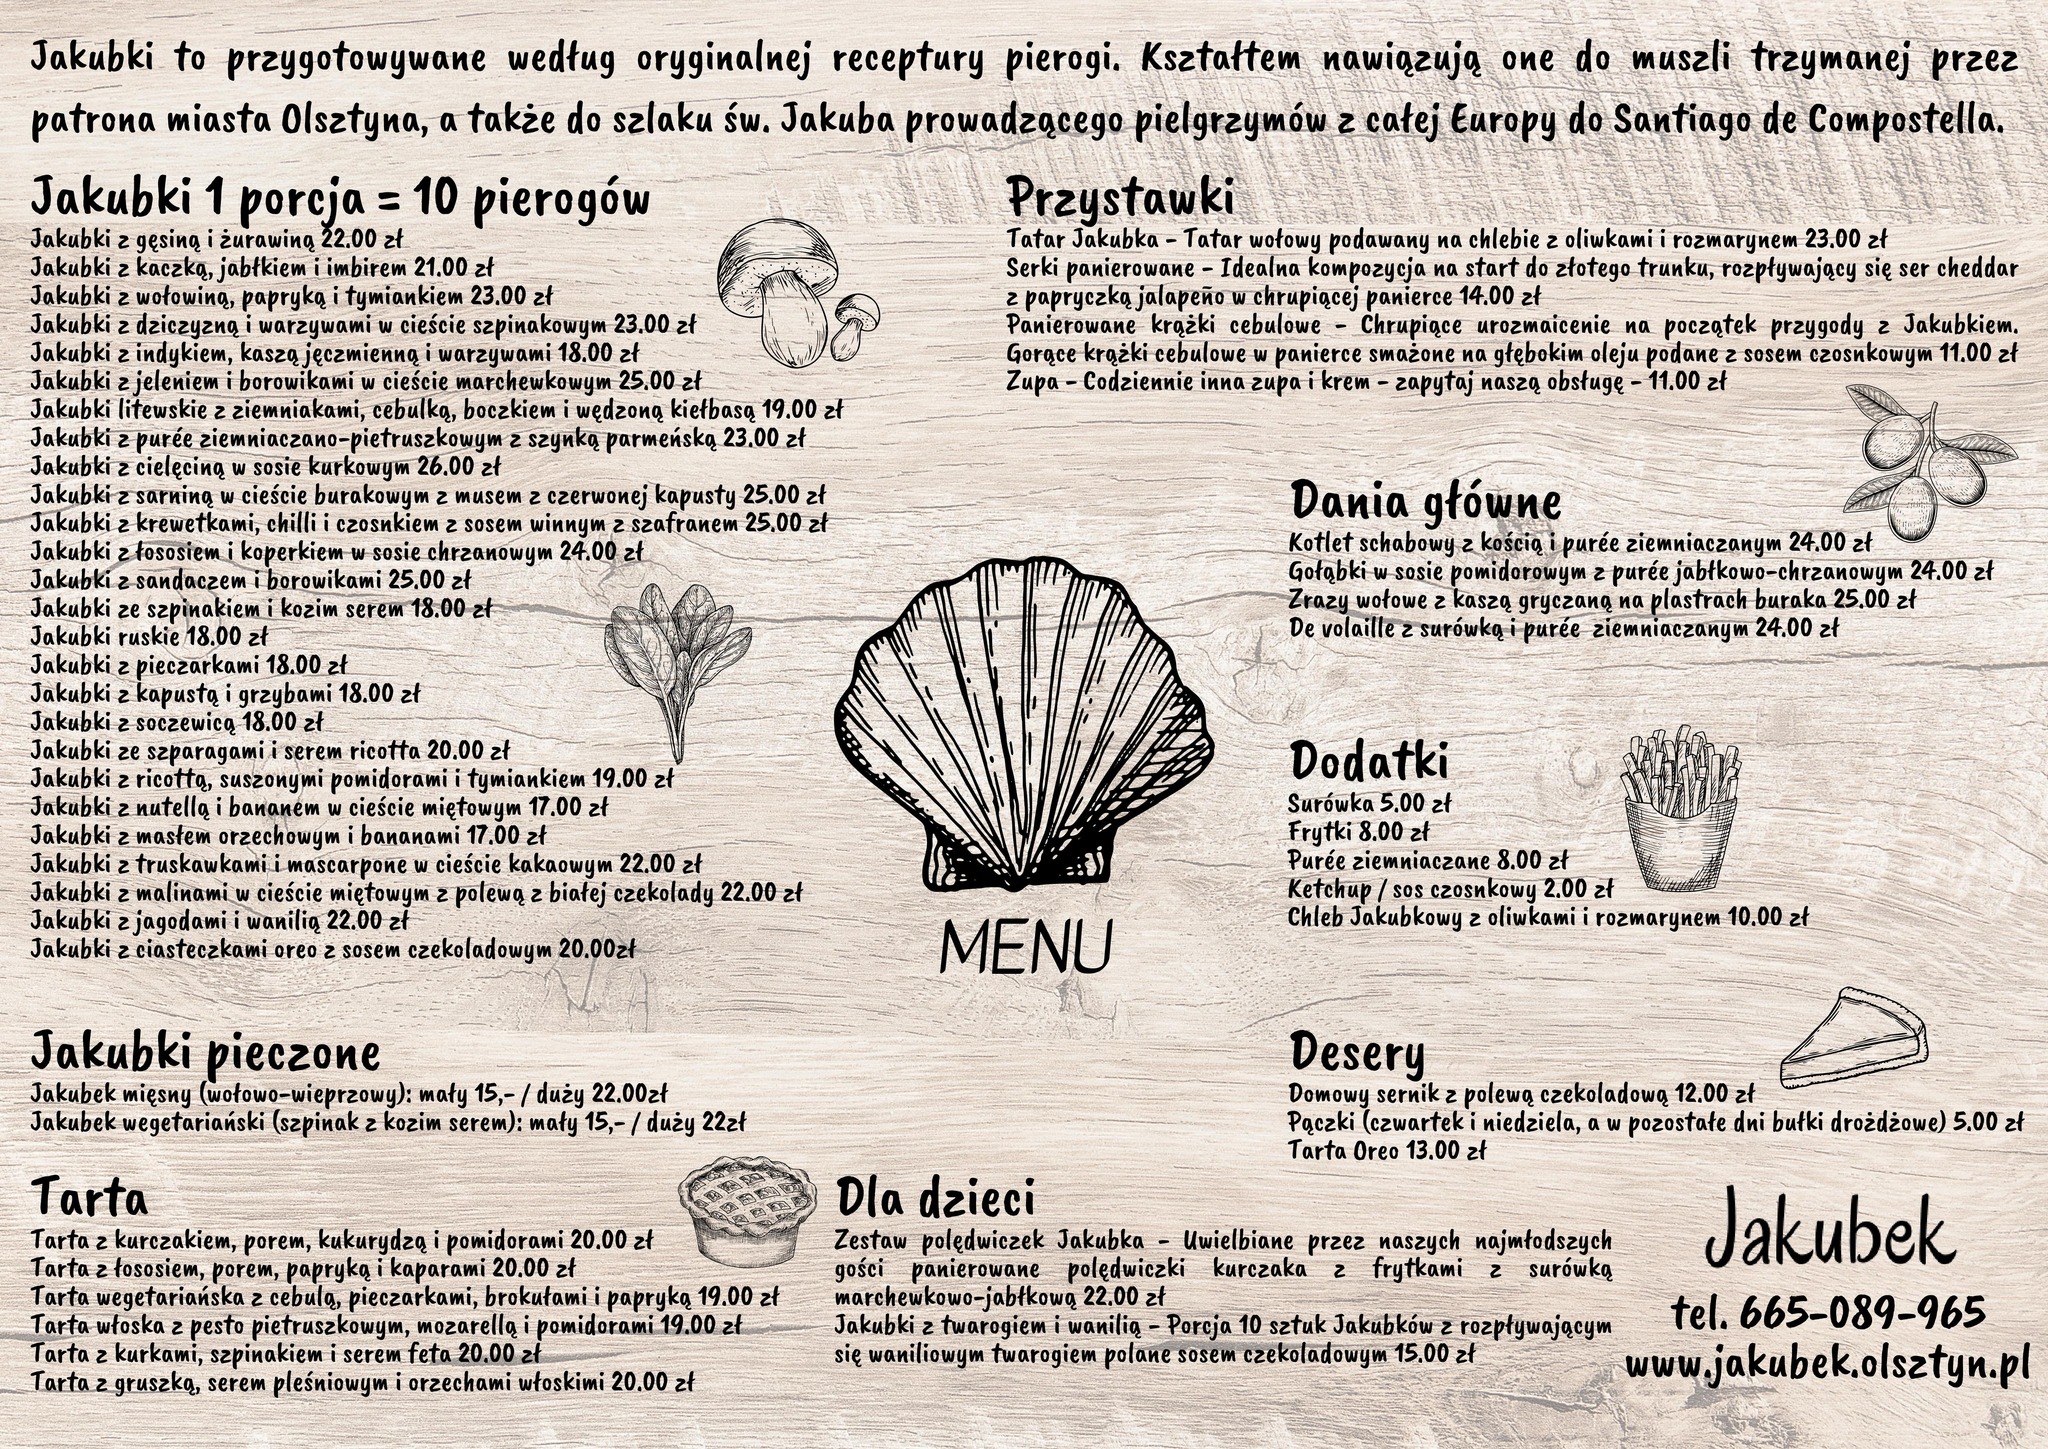 Jakubki to przygotowywane według oryginalnej receptury pierogi. Kształtem nawiązują one do muszli trzymanej przez
patrona miasta Olsztyna, a także do szlaku św. Jakuba prowadzącego pielgrzymów z całej Europy do Santiago de Compostella.
Jakubki 1 porcja = 10 pierogów
Jakubki z gęsiną i żurawiną 22.00 zł
Jakubki z kaczką, jabłkiem i imbirem 21.00 zł
Jakubki z wołowiną, papryką i tymiankiem 23.00 zł
Jakubki z dziczyzną i warzywami w cieście szpinakowym 23.00 zł
Jakubki z indykiem, kaszą jęczmienną i warzywami 18.00 zł
Jakubki z jeleniem i borowikami w cieście marchewkowym 25.00 zł
Jakubki litewskie z ziemniakami, cebulką, boczkiem i wędzoną kiełbasą 19.00 zł
Jakubki z purée ziemniaczano-pietruszkowym z szynką parmeńską 23.00 zł
Jakubki z cielęciną w sosie kurkowym 26.00 zł
Jakubki z sarniną w cieście burakowym z musem z czerwonej kapusty 25.00 zł
Jakubki z krewetkami, chilli i czosnkiem z sosem winnym z szafranem 25.00 zł
Jakubki z łososiem i koperkiem w sosie chrzanowym 24.00 zł
Jakubki z sandaczem i borowikami 25.00 zł
Jakubki ze szpinakiem i kozim serem 18.00 zł
Jakubki ruskie 18.00 zł
Jakubki z pieczarkami 18.00 zł
Jakubki z kapustą i grzybami 18.00 zł
Jakubki z soczewicą 18.00 zł
Jakubki ze szparagami i serem ricotta 20.00 zł
Jakubki z ricottą, suszonymi pomidorami i tymiankiem 19.00 zł
Jakubki z nutellą i bananem w cieście miętowym 17.00 zł
Jakubki z masłem orzechowym i bananami 17.00 zł
Jakubki z truskawkami i mascarpone w cieście kakaowym 22.00 zł
Jakubki z malinami w cieście miętowym z polewą z białej czekolady 22.00 zł
Jakubki z jagodami i wanilią 22.00 zł
Jakubki z ciasteczkami oreo z sosem czekoladowym 20.00zł
Jakubki pieczone
Jakubek mięsny (wołowo-wieprzowy): mały 15,- / duży 22.00zł
Jakubek wegetariański (szpinak z kozim serem): mały 15,- / duży 22zł
Tarta
Tarta z kurczakiem, porem, kukurydzą i pomidorami 20.00 zł
Tarta z łososiem, porem, papryką i kaparami 20.00 zł
Tarta wegetariańska z cebulą, pieczarkami, brokułami i papryką 19.00 zł
Tarta włoska z pesto pietruszkowym, mozarellą i pomidorami 19.00 zł
Tarta z kurkami, szpinakiem i serem feta 20.00 zł
Tarta z gruszką, serem pleśniowym i orzechami włoskimi 20.00 zł
MENU
Przystawki
Tatar Jakubka - Tatar wołowy podawany na chlebie z oliwkami i rozmarynem 23.00 zł
Serki panierowane - Idealna kompozycja na start do złotego trunku, rozpływający się ser cheddar
z papryczką jalapeño w chrupiącej panierce 14.00 zł
Panierowane krążki cebulowe - Chrupiące urozmaicenie na początek przygody z Jakubkiem.
Gorące krążki cebulowe w panierce smażone na głębokim oleju podane z sosem czosnkowym 11.00 zł
Zupa - Codziennie inna zupa i krem - zapytaj naszą obsługę - 11.00 zł
Dania główne
Kotlet schabowy z kością i purée ziemniaczanym 24.00 zł
Gołąbki w sosie pomidorowym z purée jabłkowo-chrzanowym 24.00 zł
Zrazy wołowe z kaszą gryczaną na plastrach buraka 25.00 zł
De volaille z surówką i purée ziemniaczanym 24.00 zł
Dodatki
Surówka 5.00 zł
Frytki 8.00 zł
Purée ziemniaczane 8.00 zł
Ketchup / sos czosnkowy 2.00 zł
Chleb Jakubkowy z oliwkami i rozmarynem 10.00 zł
Desery
Domowy sernik z polewą czekoladową 12.00 zł
Pączki (czwartek i niedziela, a w pozostałe dni bułki drożdżowe) 5.00 zł
Tarta Oreo 13.00 zł
Dla dzieci
Zestaw polędwiczek Jakubka - Uwielbiane przez naszych najmłodszych
gości panierowane polędwiczki kurczaka z frytkami z surówką
marchewkowo-jabłkową 22.00 zł
Jakubki z twarogiem i wanilią - Porcja 10 sztuk Jakubków z rozpływającym
się waniliowym twarogiem polane sosem czekoladowym 15.00 zł
Jakubek
tel. 665-089-965
www.jakubek.olsztyn.pl